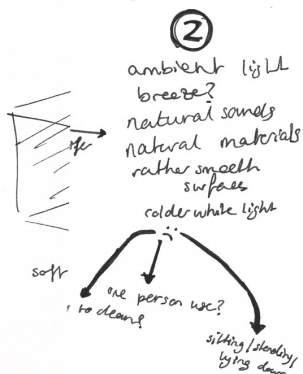 2
ambient light
breeze?
natural sounds
natural materials
rather smooth
surfaces
colder white light
soft
one person use?
to clean?
sitting/standing/
lying down